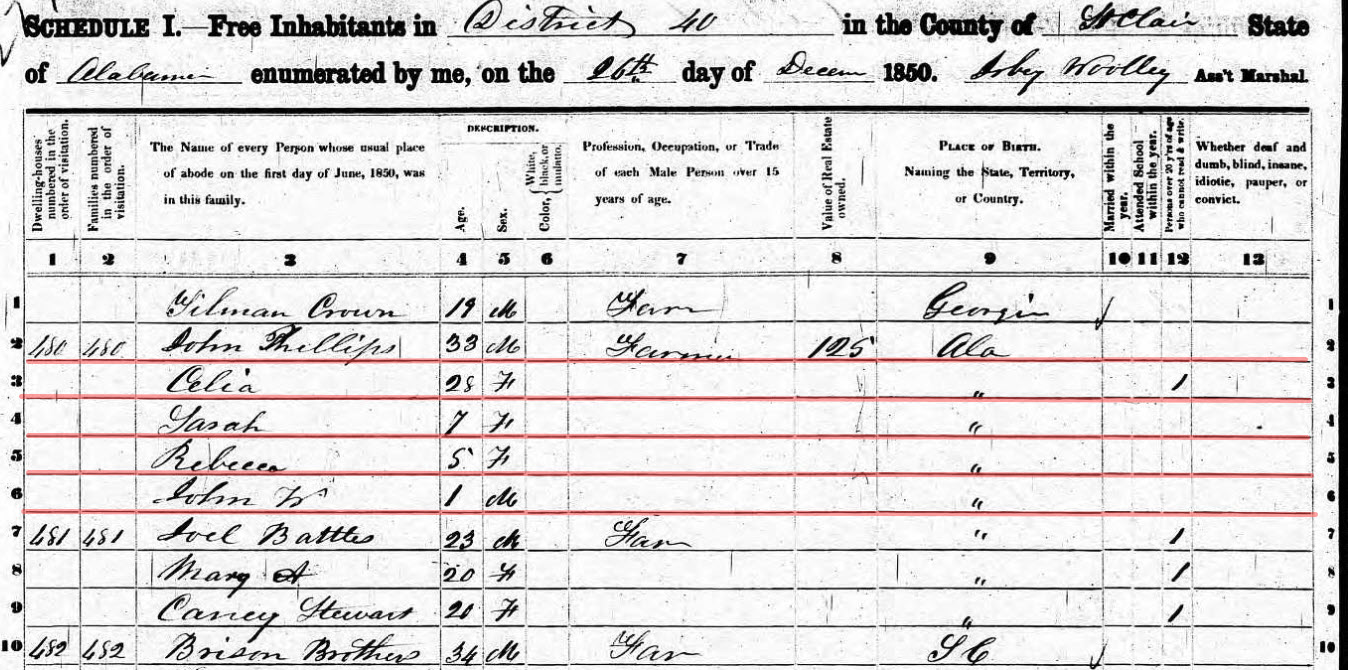 SCHEDULE I.—Free Inhabitants in District 40 in the County of St Clair State
of Alabama enumerated by me, on the 26th day of Decem 1850. Irby Woolley Ass't Marshal.
Dwelling-houses numbered in the order of visitation.
Families numbered in the order of visitation.
The Name of every Person whose usual place
of abode on the first day of June, 1850, was
in this family.
DESCRIPTION.
Age.
Sex.
Color, White, black, or mulatto.
Profession, Occupation, or Trade
of each Male Person over 15
years of age.
Value of Real Estate owned.
PLACE OF BIRTH.
Naming the State, Territory,
or Country.
Married within the year.
Attended School within the year.
Persons over 20 y'rs of age who cannot read & write.
Whether deaf and
dumb, blind, insane,
idiotic, pauper, or
convict.
1 2 3 4 5 6 7 8 9 10 11 12 13
1 Tilman Crown 19 M Farm Georgia 1
2 480 480 John Phillips 33 M Farmer 125 Ala 2
3 Celia 28 F " 1 3
4 Sarah 7 F " 4
5 Rebecca 5 F " 5
6 John W 1 M " 6
7 481 481 Joel Battles 23 M Far " 1 7
8 Mary A 20 F " 1 8
9 Caney Stewart 20 F " 1 9
10 482 482 Brison Brothers 34 M Far SC 10